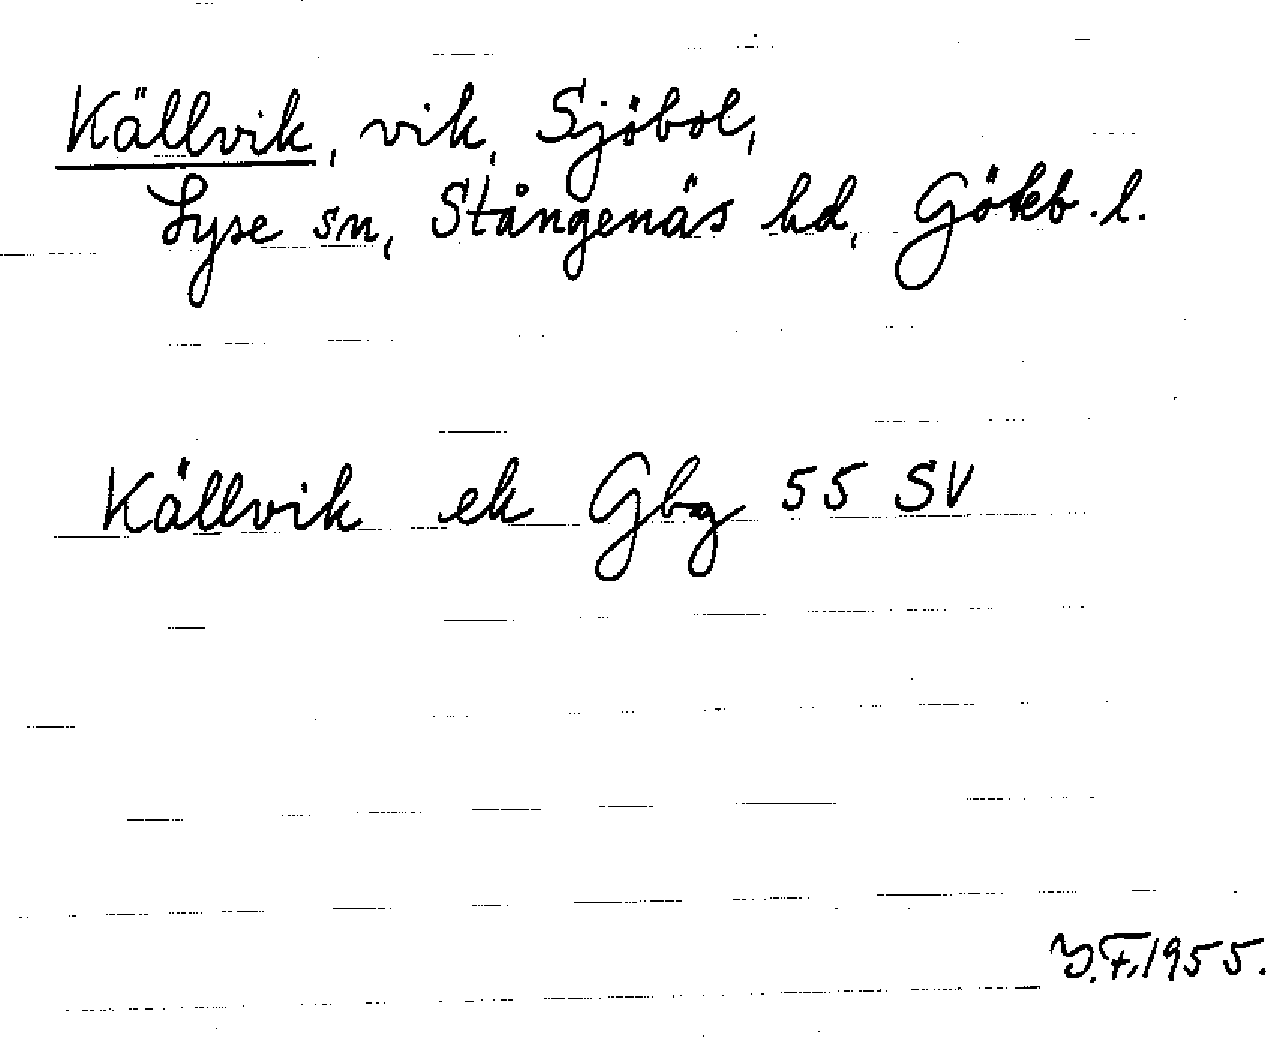 Källvik, vik, Sjöbol,
Lyse sn, Stångenäs hd, Götéb. l.
Källvik ek Gbg 55 SV
F. 1955.